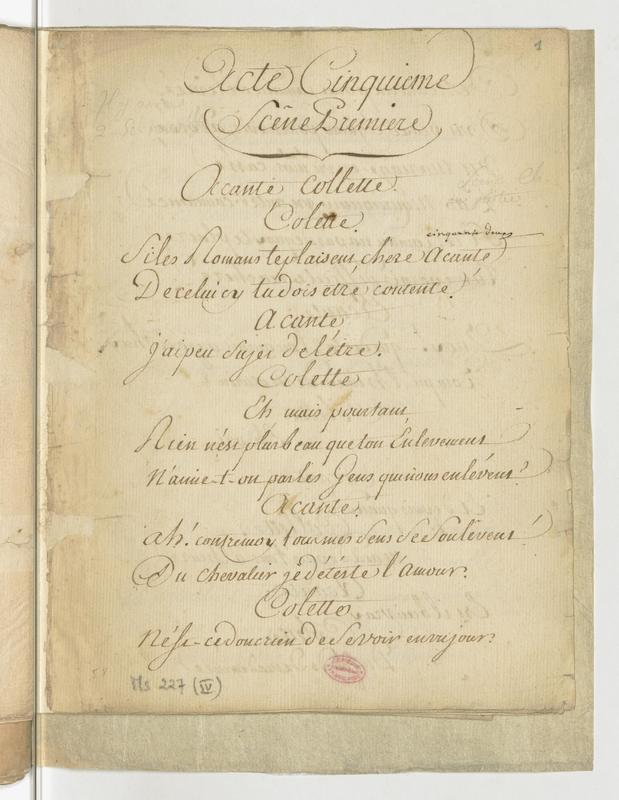 1
Acte Cinquieme
Scêne Premiere
Accante Collette.
Colette.
cinquante deux
Si les Romans te plaisent, chere Acante
De celui cy tu dois etré contente.
Acante
j'ai peu sujet de l'étre.
Colette
Eh mais pourtant
Rien n'est plus beau que ton Enlevement
N'aime-t-on pas les Gens qui nous enlévent?
Acante.
ah! contre moy tous mes Sens Se Soulêvent!
Du Chevalier je détéste l'amour.
Colette
N'ést-ce donc rien de Se voir en un jour
Ms 227 (IV)